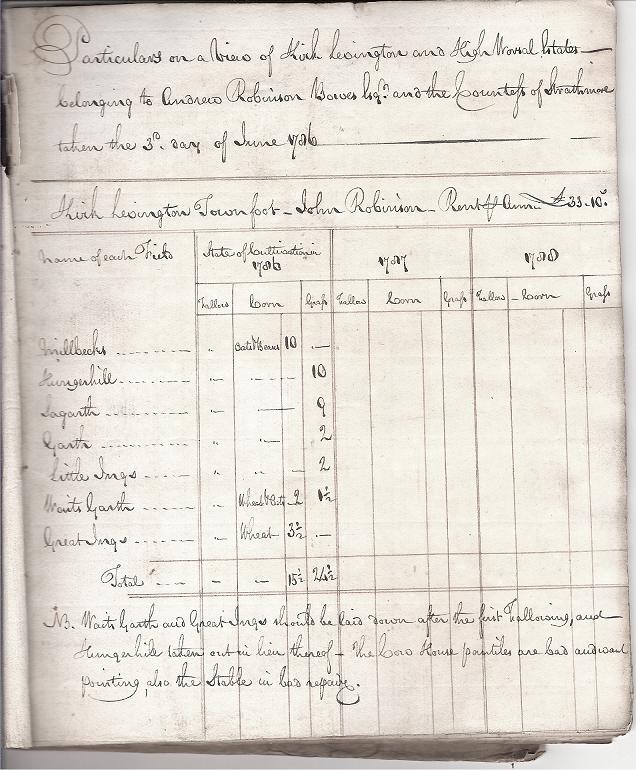 Particulars on a View of Kirk Levington and High Worsal Estates
belonging to Andrew Robinson Bowes Esqr. and the Countess of Strathmore
taken the 3d. day of June 1786
Kirk Levington Townfoot - John Robinson - Rent ⅌ Ann. £33-10s.
Name of each Field State of Cultivation in 1786 1787 1788
Fallow Corn Grass Fallow Corn Grass Fallow - Corn Grass
Millbecks " Oats & Beans 10 —
Hungerhill " - - - - 10
Lagarth " — 9
Garth " " 2
Little Ings " " — 2
Waits Garth " Wheat & Oats - 2 1½
Great Ings " Wheat 3½ —
Total " " 15½ 24½
NB. Waits Garth and Great Ings should be laid down after the first Fallowing, and
Hungerhill taken out in lieu thereof - The Cow House pantiles are bad and want
pointing, also the Stable in bad repair.